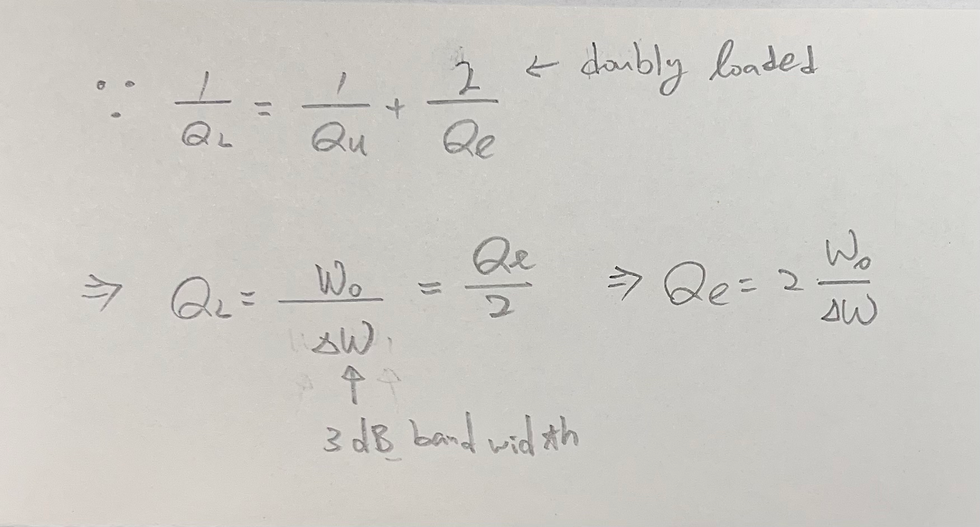 ∵ 1/Q_L = 1/Q_u + 2/Q_e ← doubly loaded
⇒ Q_L = W_0/ΔW = Q_e/2 ⇒ Q_e = 2 W_0/ΔW
↑
3dB bandwidth